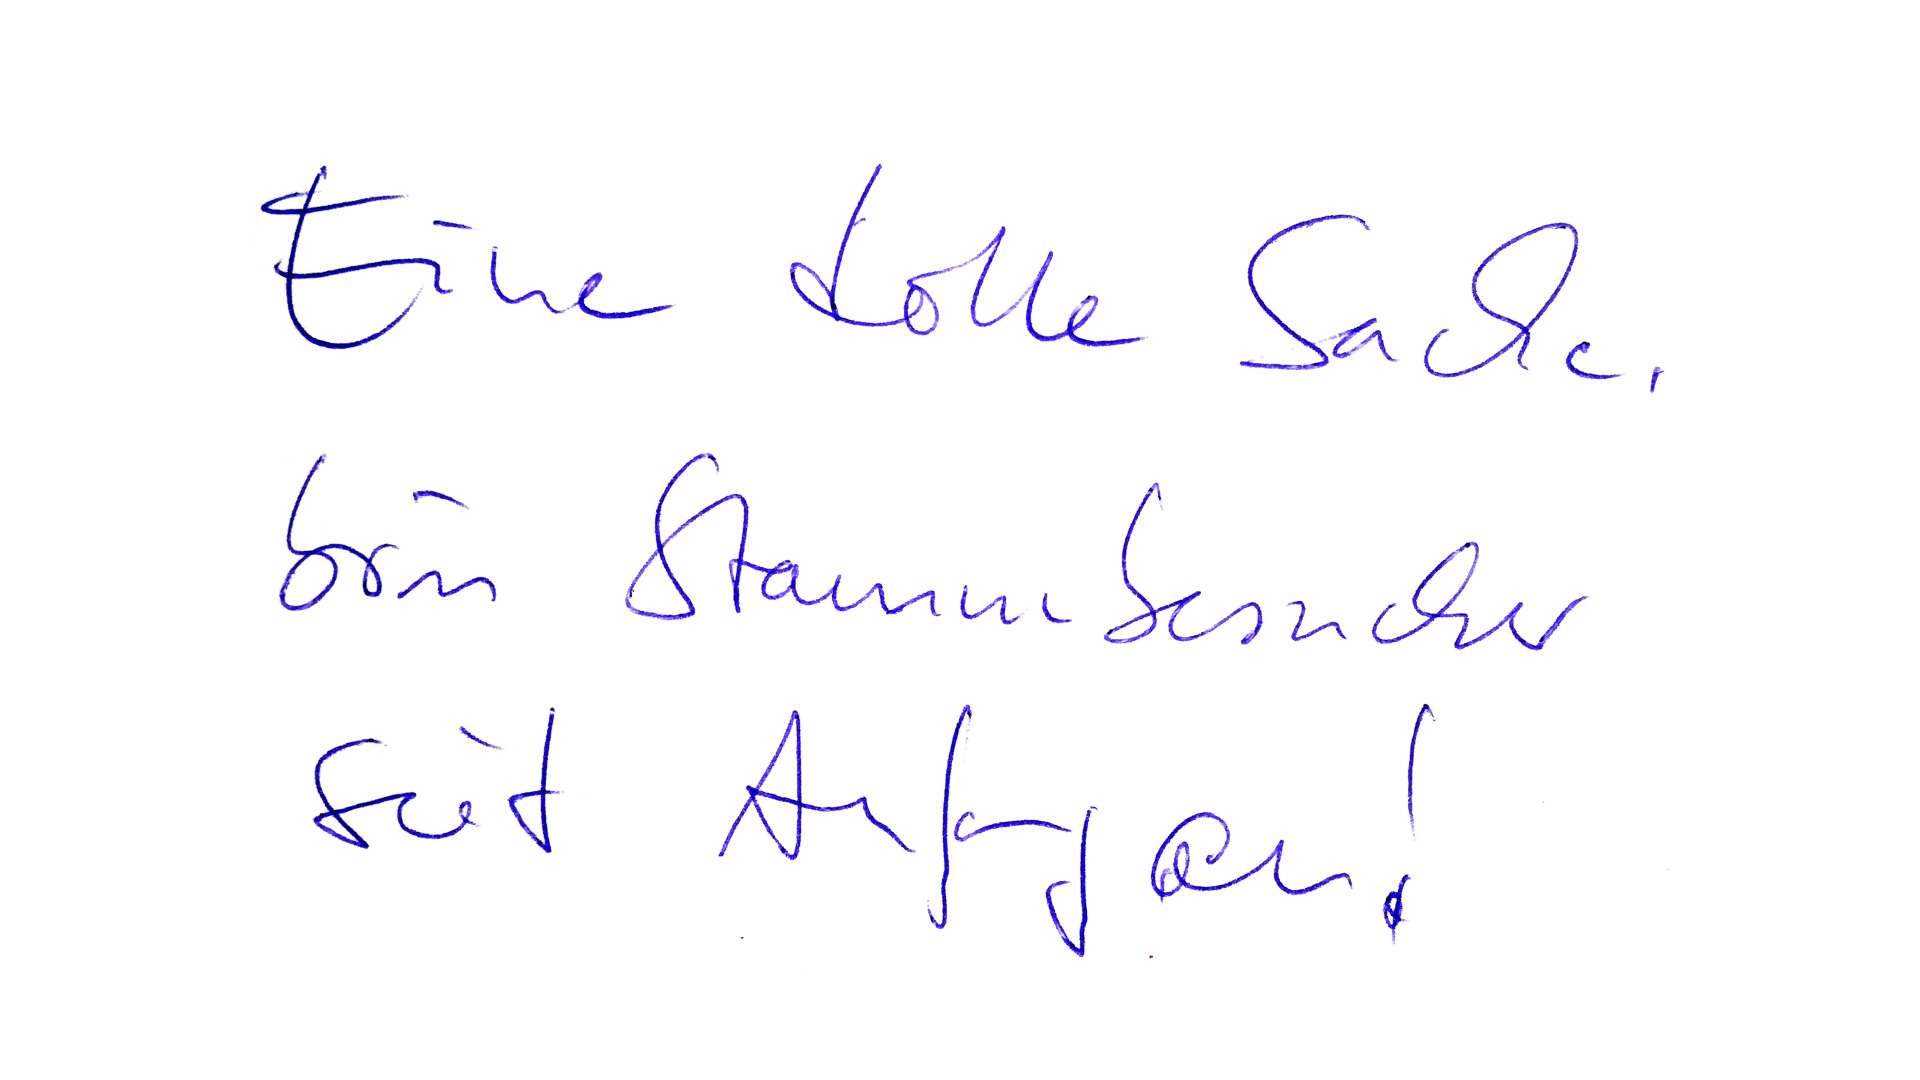 Eine tolle Sache,
bin Stammbesucher
seit Anfang an!